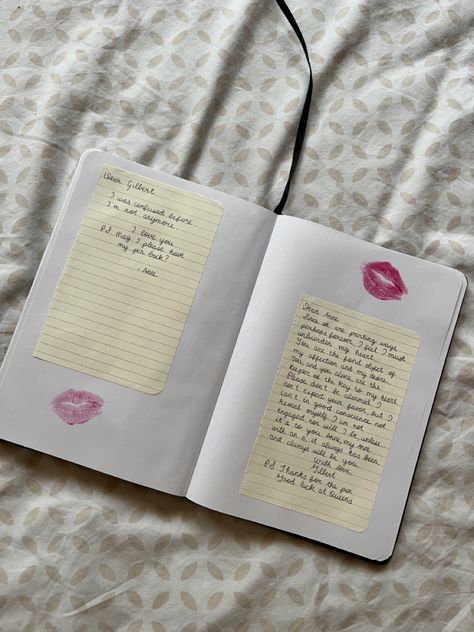 Dear Gilbert
I was confused before
I'm not anymore
I love you
P.S May I please have
my pen back?
- Anne
Dear Anne
Since we are parting ways
perhaps forever, I feel I must
unburden my heart.
You are the fond object of
my affection and my desire.
You and you alone, are the
keeper of the key to my heart
Please don't be alarmed I
don't expect your favor, but I
can't in good conscience not
reveal myself. I am not
engaged, nor will I be, unless
it's to you Anne, my Anne
with an e, it always has been
and always will be you
With love,
Gilbert
P.S Thanks for the pen
Good luck at Queens